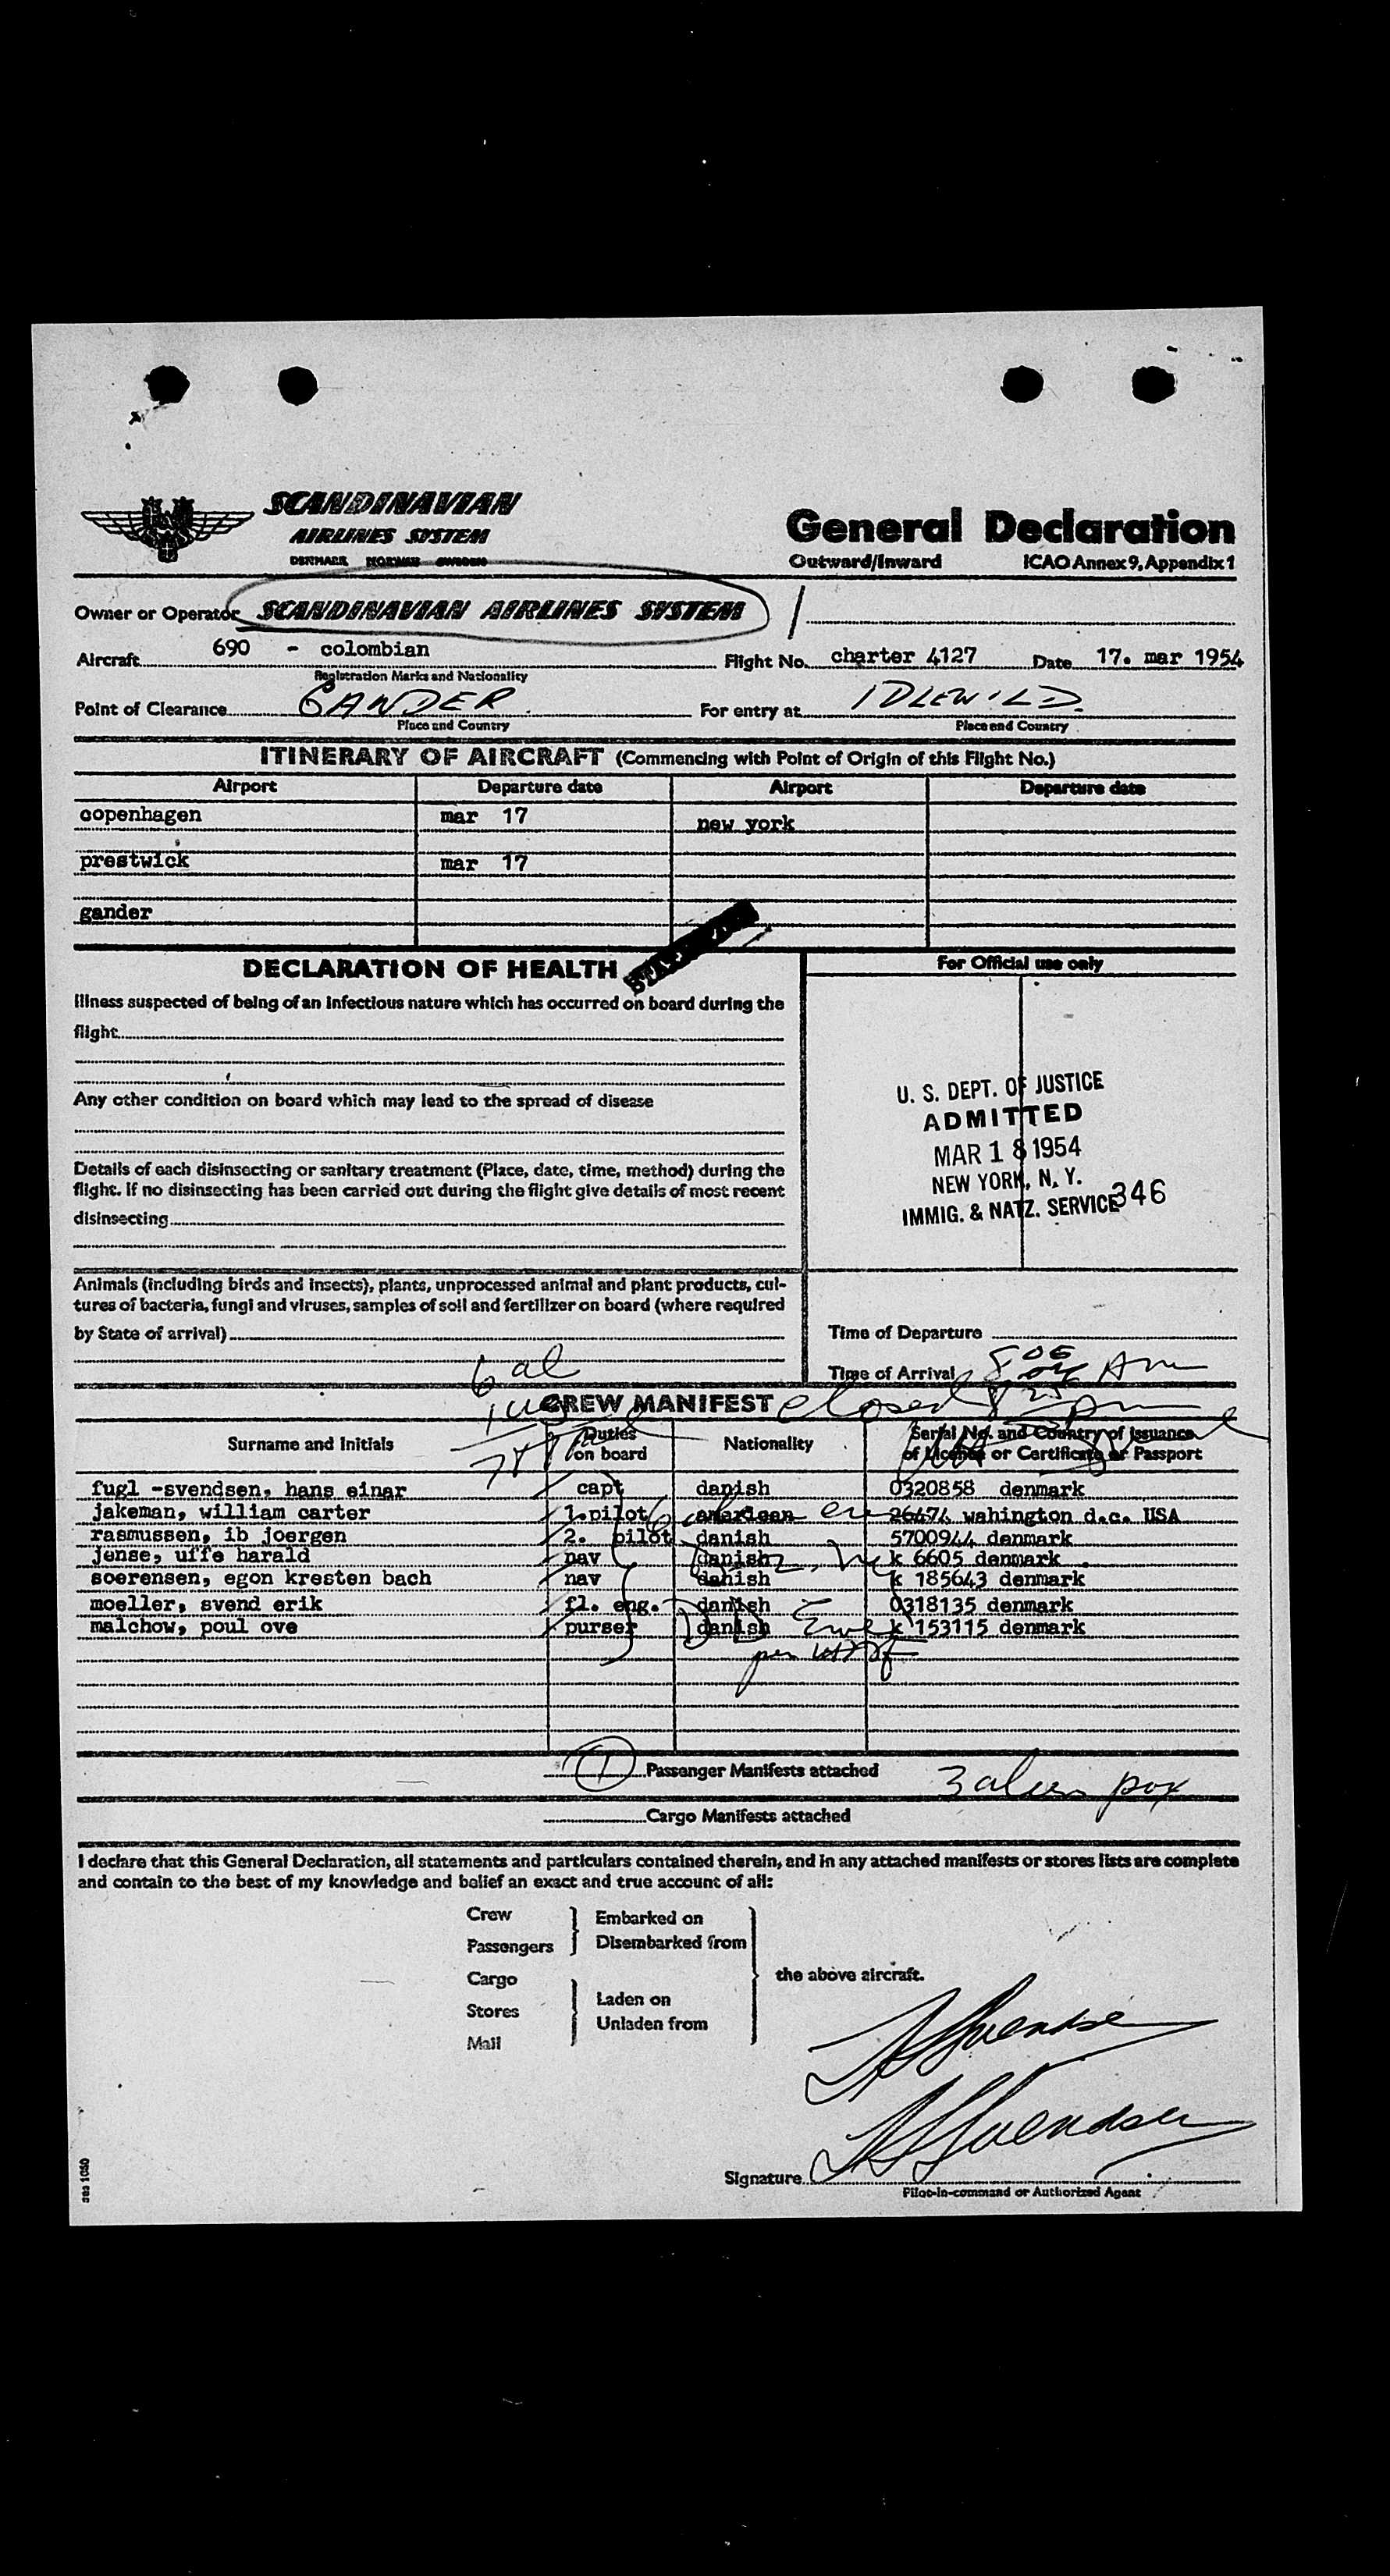 SCANDINAVIAN
AIRLINES SYSTEM
DENMARK NORWAY SWEDEN
General Declaration
Outward/Inward ICAO Annex 9, Appendix 1
Owner or Operator SCANDINAVIAN AIRLINES SYSTEM
Aircraft 690 - colombian Flight No. charter 4127 Date 17. mar 1954
Registration Marks and Nationality
Point of Clearance GANDER For entry at IDLEWILD
Place and Country Place and Country
ITINERARY OF AIRCRAFT (Commencing with Point of Origin of this Flight No.)
Airport Departure date Airport Departure date
copenhagen mar 17 new york
prestwick mar 17
gander
DECLARATION OF HEALTH
For Official use only
Illness suspected of being of an infectious nature which has occurred on board during the
flight
Any other condition on board which may lead to the spread of disease
Details of each disinsecting or sanitary treatment (Place, date, time, method) during the
flight. If no disinsecting has been carried out during the flight give details of most recent
disinsecting
U. S. DEPT. OF JUSTICE
ADMITTED
MAR 18 1954
NEW YORK, N. Y.
IMMIG. & NATZ. SERVICE 346
Animals (including birds and insects), plants, unprocessed animal and plant products, cul-
tures of bacteria, fungi and viruses, samples of soil and fertilizer on board (where required
by State of arrival)
Time of Departure
Time of Arrival 8 05 Am
6 al
CREW MANIFEST closed 8 25 pm
Surname and Initials Duties on board Nationality Serial No. and Country of Issuance
of License or Certificate or Passport
fugl -svendsen, hans einar capt danish 0320858 denmark
jakeman, william carter 1.pilot american 26474 wahington d.c. USA
rasmussen, ib joergen 2. pilot danish 5700944 denmark
jense, uffe harald nav danish k 6605 denmark
soerensen, egon kresten bach nav danish k 185643 denmark
moeller, svend erik fl. eng. danish 0318135 denmark
malchow, poul ove purser danish k 153115 denmark
1 Passenger Manifests attached 3 alien pax
Cargo Manifests attached
I declare that this General Declaration, all statements and particulars contained therein, and in any attached manifests or stores lists are complete
and contain to the best of my knowledge and belief an exact and true account of all:
Crew Embarked on
Passengers Disembarked from
the above aircraft.
Cargo
Stores Laden on
Unladen from
Mail
Svendsen
Svendsen
Signature
Pilot-in-command or Authorized Agent
sas 1050